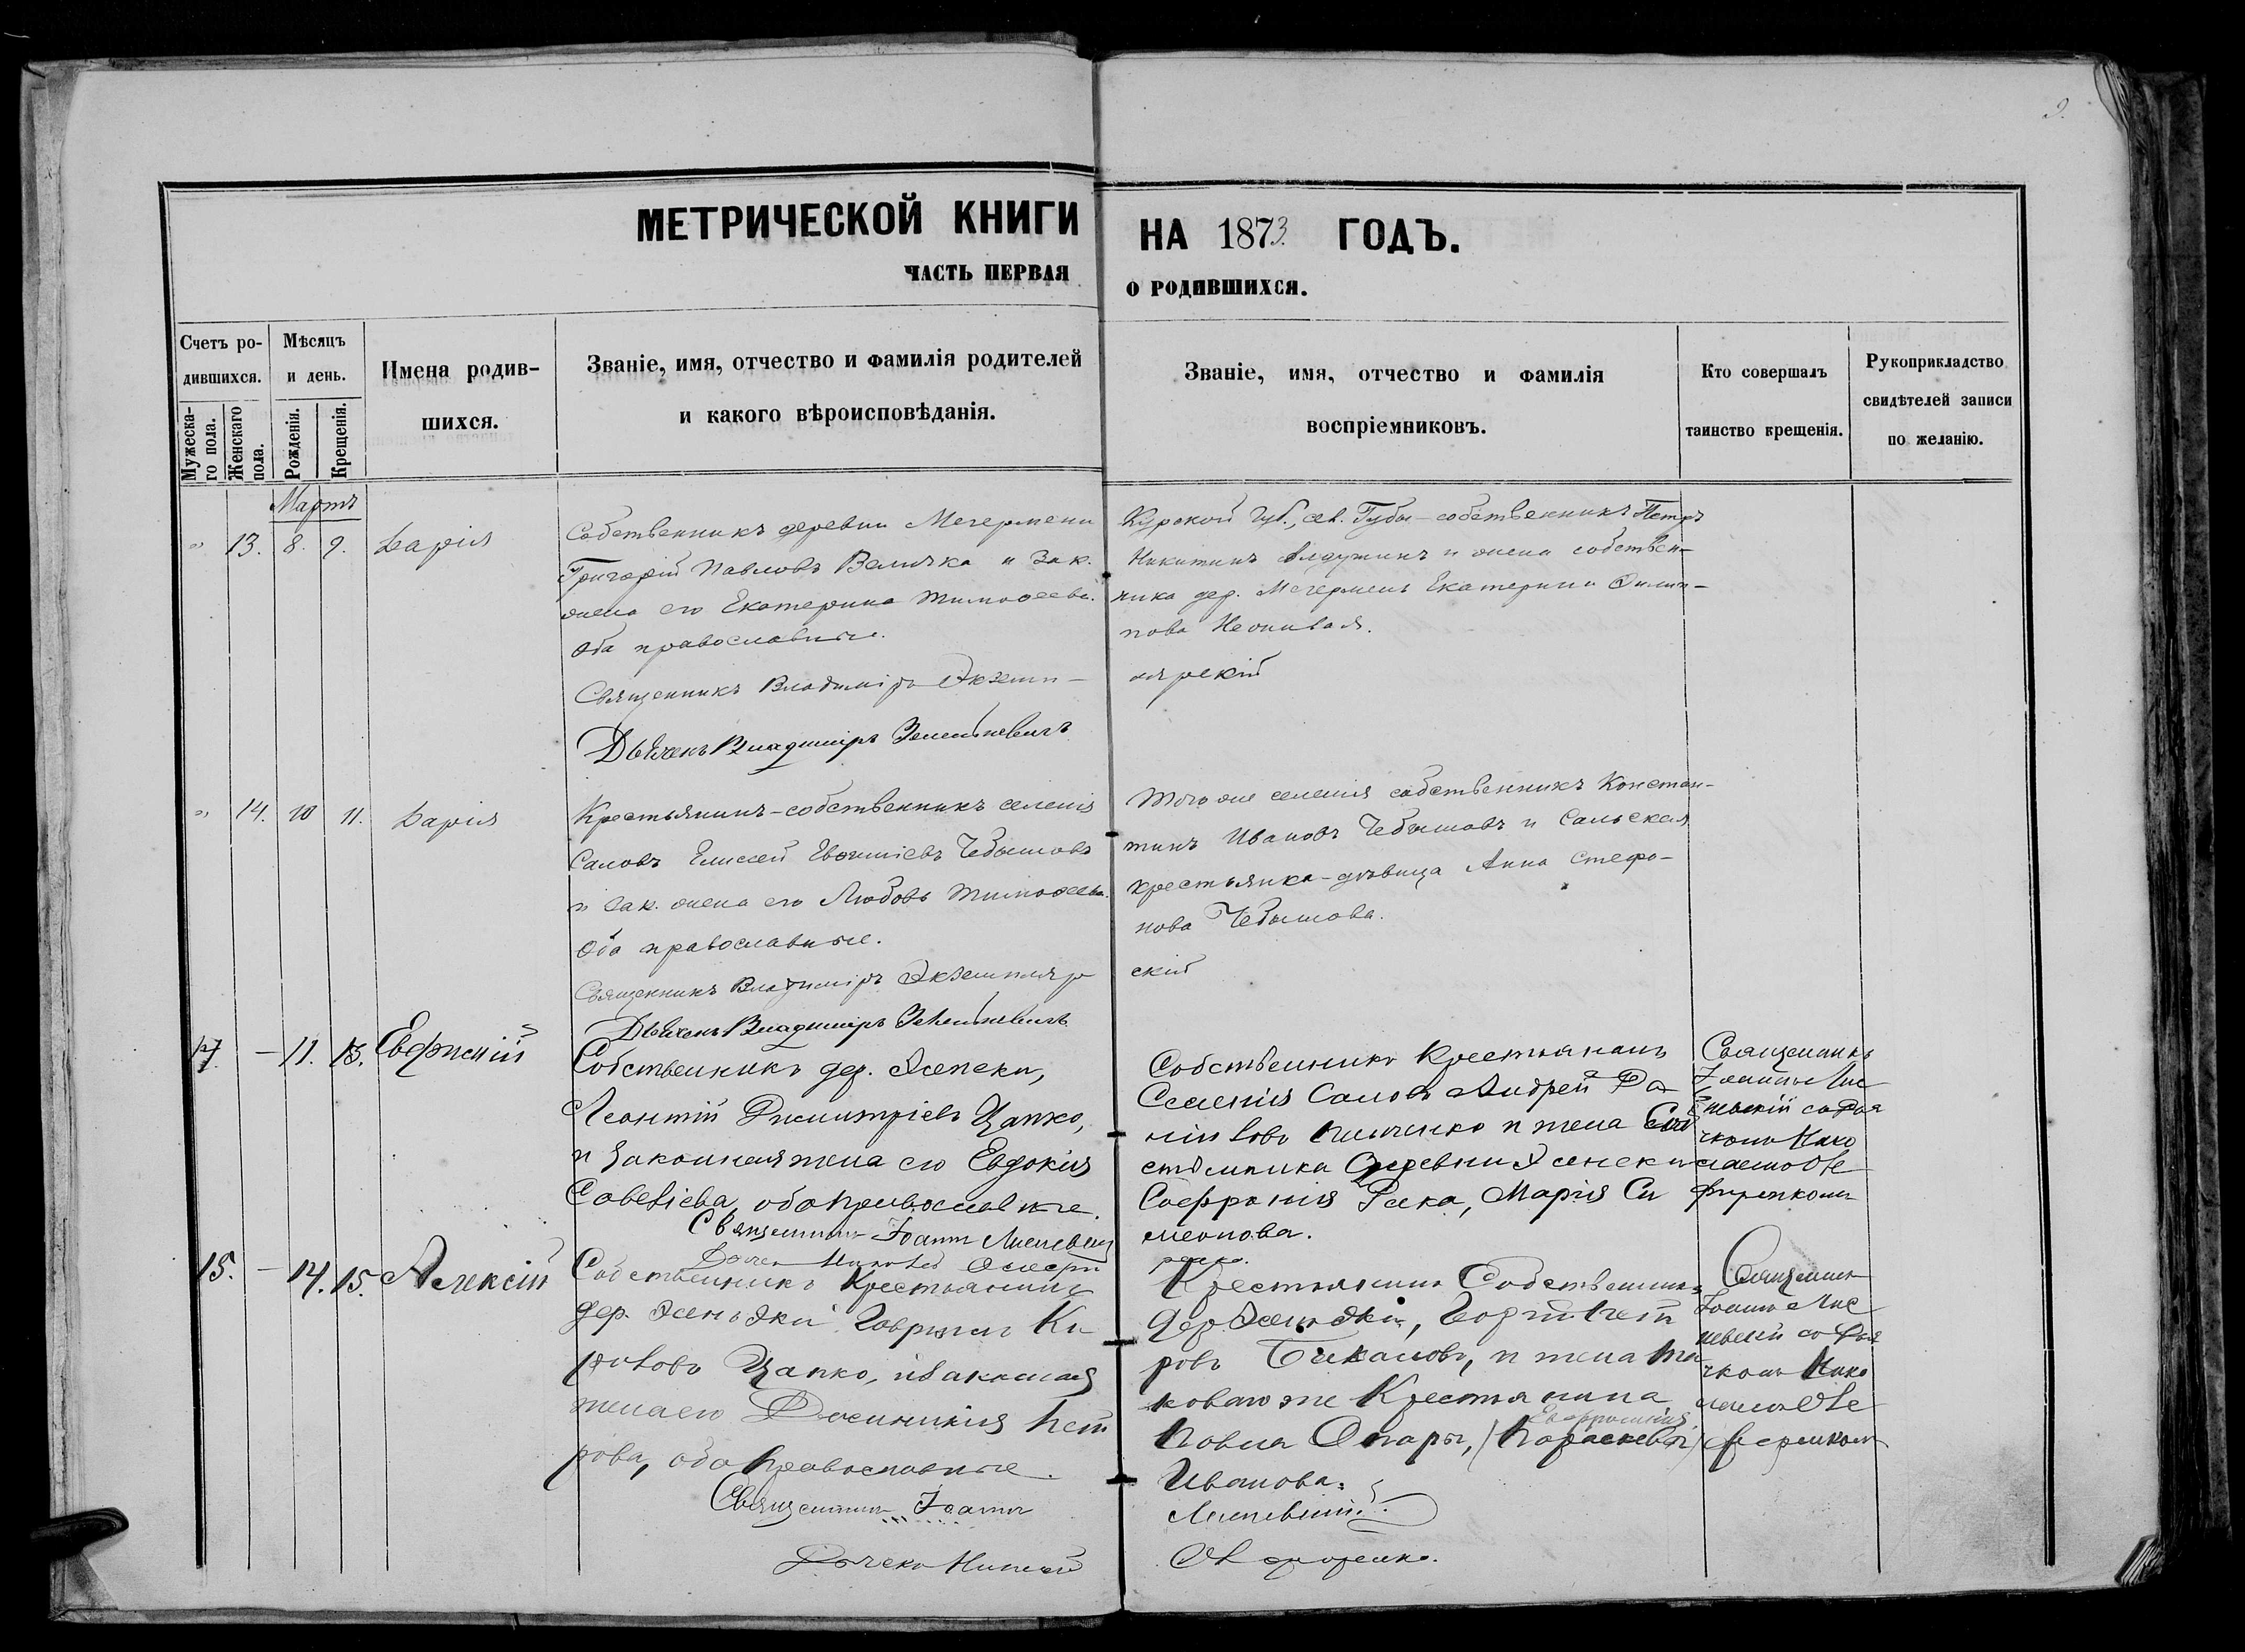 9.
МЕТРИЧЕСКОЙ КНИГИ НА 1873. ГОДЪ.
ЧАСТЬ ПЕРВАЯ О РОДИВШИХСЯ.
Счетъ ро-
дившихся.
Мужеска-
го пола.
Женскаго
пола.
Мѣсяцъ
и день.
Рожденія.
Крещенія.
Имена родив-
шихся.
Званіе, имя, отчество и фамилія родителей
и какого вѣроисповѣданія.
Званіе, имя, отчество и фамилія
воспріемниковъ.
Кто совершалъ
таинство крещенія.
Рукоприкладство
свидѣтелей записи
по желанію.
Мартъ
" 13. 8. 9. Дарія
Собственникъ деревни
Григорій Павловъ Величка и зак.
жена его Екатерина Тимофеева.
Оба православные.
Священникъ Владиміръ Экземп-
Дьячекъ Владиміръ
Курской Губ., Губы - собственникъ Петръ
Никитинъ и жена собствен-
ника дер. Екатерина Филип-
пова
лярскій
" 14. 10 11. Дарія
Крестьянинъ-собственникъ селенія
Саловъ Елисей Чебышовъ
и зак. жена его Любовь Тимофеева.
Оба православные.
Священникъ Владиміръ Экземпляр
Дьячекъ Владиміръ
Того же селенія собственникъ Констан-
тинъ Ивановъ Чебышовъ и Сальская
крестьянка-дѣвица Анна Стефа-
нова Чебышова.
скій
17. — 11. 15. Евфимій
Собственникъ дер.
Леонтій Димитріевъ Цапко,
и законная жена его Евдокія
Савеліева, оба православные.
Священникъ Іоаннъ
Собственникъ Крестьянинъ
Селенія Саловъ Андрей Да
ніиловъ и жена Соб
ственника Деревни
Софронія Мария Си
меонова.
Священникъ
Іоаннъ Лис
невскій со Дья
чкомъ Нико
лаемъ Ѳе
15. — 14. 15. Алексій
Собственникъ Крестьянинъ
дер. Гавріилъ Ки
риловъ Цапко, и законная
жена его Домникія Пет
рова, оба Православные.
Священникъ Іоаннъ
Дьячекъ
Крестьянинъ Собственникъ
дер. Георгій Пет
ровъ и жена та
коваго же Крестьянина
Евфросинія
Павла Опары, (Параскева)
Иванова.
Лисневскій.
Священник
Іоаннъ Лис
невскій со Дья
чкомъ Нико
лаемъ Ѳе